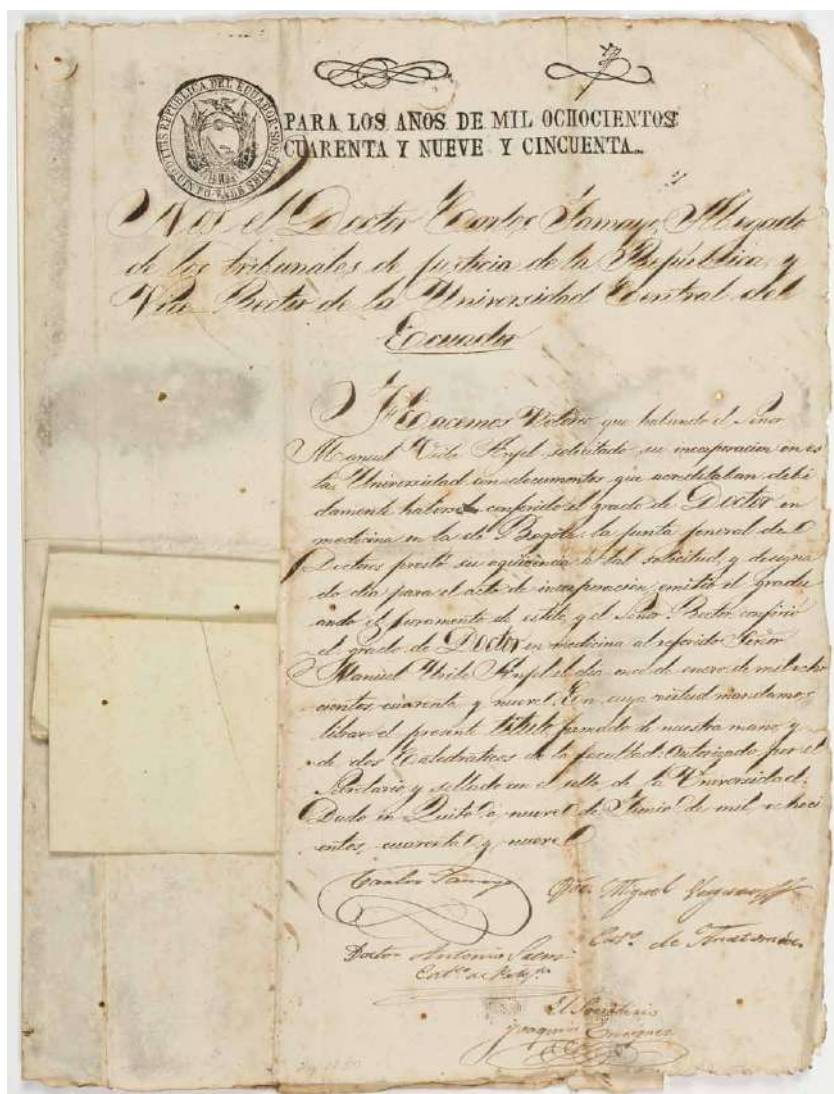 REPUBLICA DEL ECUADOR
SELLO QUINTO VALE SEIS PESOS
PARA LOS AÑOS DE MIL OCHOCIENTOS
CUARENTA Y NUEVE Y CINCUENTA
Nos el Doctor Carlos Tamayo, Abogado
de los tribunales de justicia de la República, y
Vice Rector de la Universidad Central del
Ecuador
Hacemos Notorio que habiendo el Señor
Manuel Uribe Anjel solicitado su incorporacion en es
ta Universidad con documentos que acreditaban debi
damente habersele conferido el grado de Doctor en
medicina en la de Bogotá: la junta jeneral de
Doctores prestó su aquiecencia a tal solicitud, y designa
do dia para el acto de incorporacion, emitió el gradu
ando el juramento de estilo, y el Señor Rector confirió
el grado de Doctor en medicina al referido Señor
Manuel Uribe Anjel el dia once de enero de mil ocho
cientos cuarenta y nueve. En cuya virtud mandamos
librar el presente titulo firmado de nuestra mano, y
de dos Catedraticos de la facultad: autorizado por el
Secretario y sellado con el sello de la Universidad.
Dado en Quito a nueve de Junio de mil ochoci
entos, cuarenta y nueve
Carlos Tamayo
Miguel
Doctor Antonio Saens
Cat.º de Anatomia
Cat.º de
El Secretario
Joaquin Enriquez